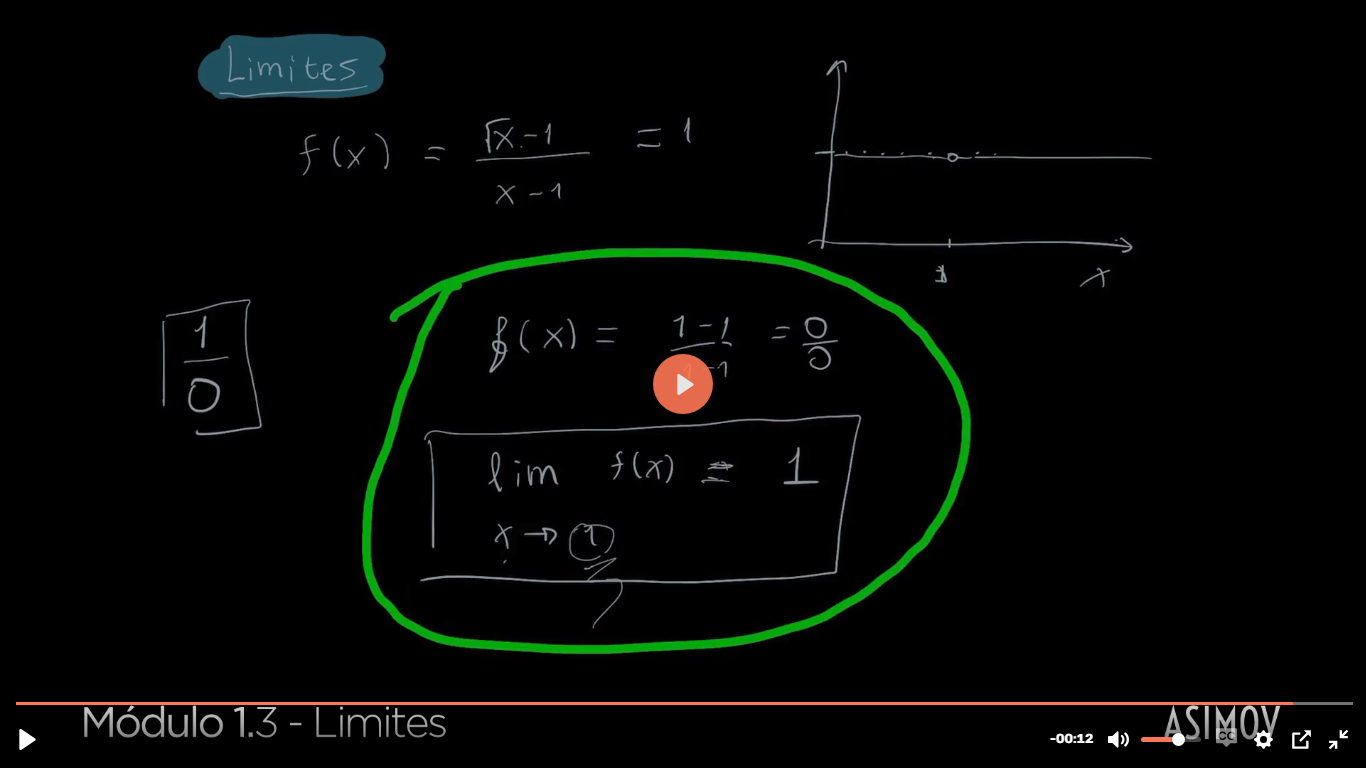 Limites
f(x) = √x - 1 / x - 1 = 1
1
x
1 / 0
f(x) = 1 - 1 / 1 - 1 = 0 / 0
lim f(x) = 1
x → 1
Módulo 1.3 - Limites
ASIMOV
-00:12
CC